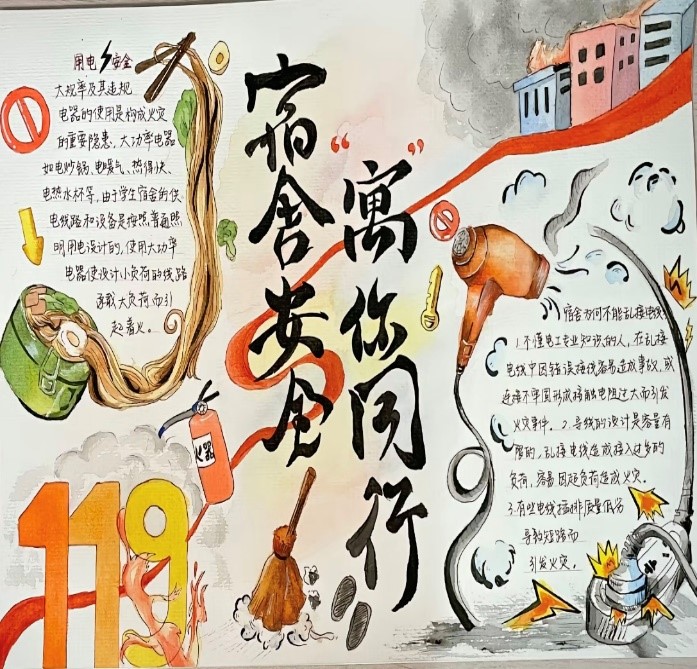 用电安全
大规率及其违规
电器的使用是构成火灾
的重要隐患、大功率电器
如电炒锅、电暖气、热得快、
电热水杯等,由于学生宿舍的供
电线路和设备是按照普通照
明用电设计的,使用大功率
电器使设计小负荷的线路
承载大负荷而引
起着火。
宿舍安全
“寓”你同行
宿舍为何不能乱接电线
1.不懂电工专业知识的人,在乱接
电线中因错误接线容易造成事故,或
连接不牢固形成接触电阻过大而引发
火灾事件。2.导线的设计是容量有
限的,乱接电线造成接入过多的
负荷,容易因超负荷造成火灾。
3.有些电线插排质量低劣
导致短路而
引发火灾。
火器
119